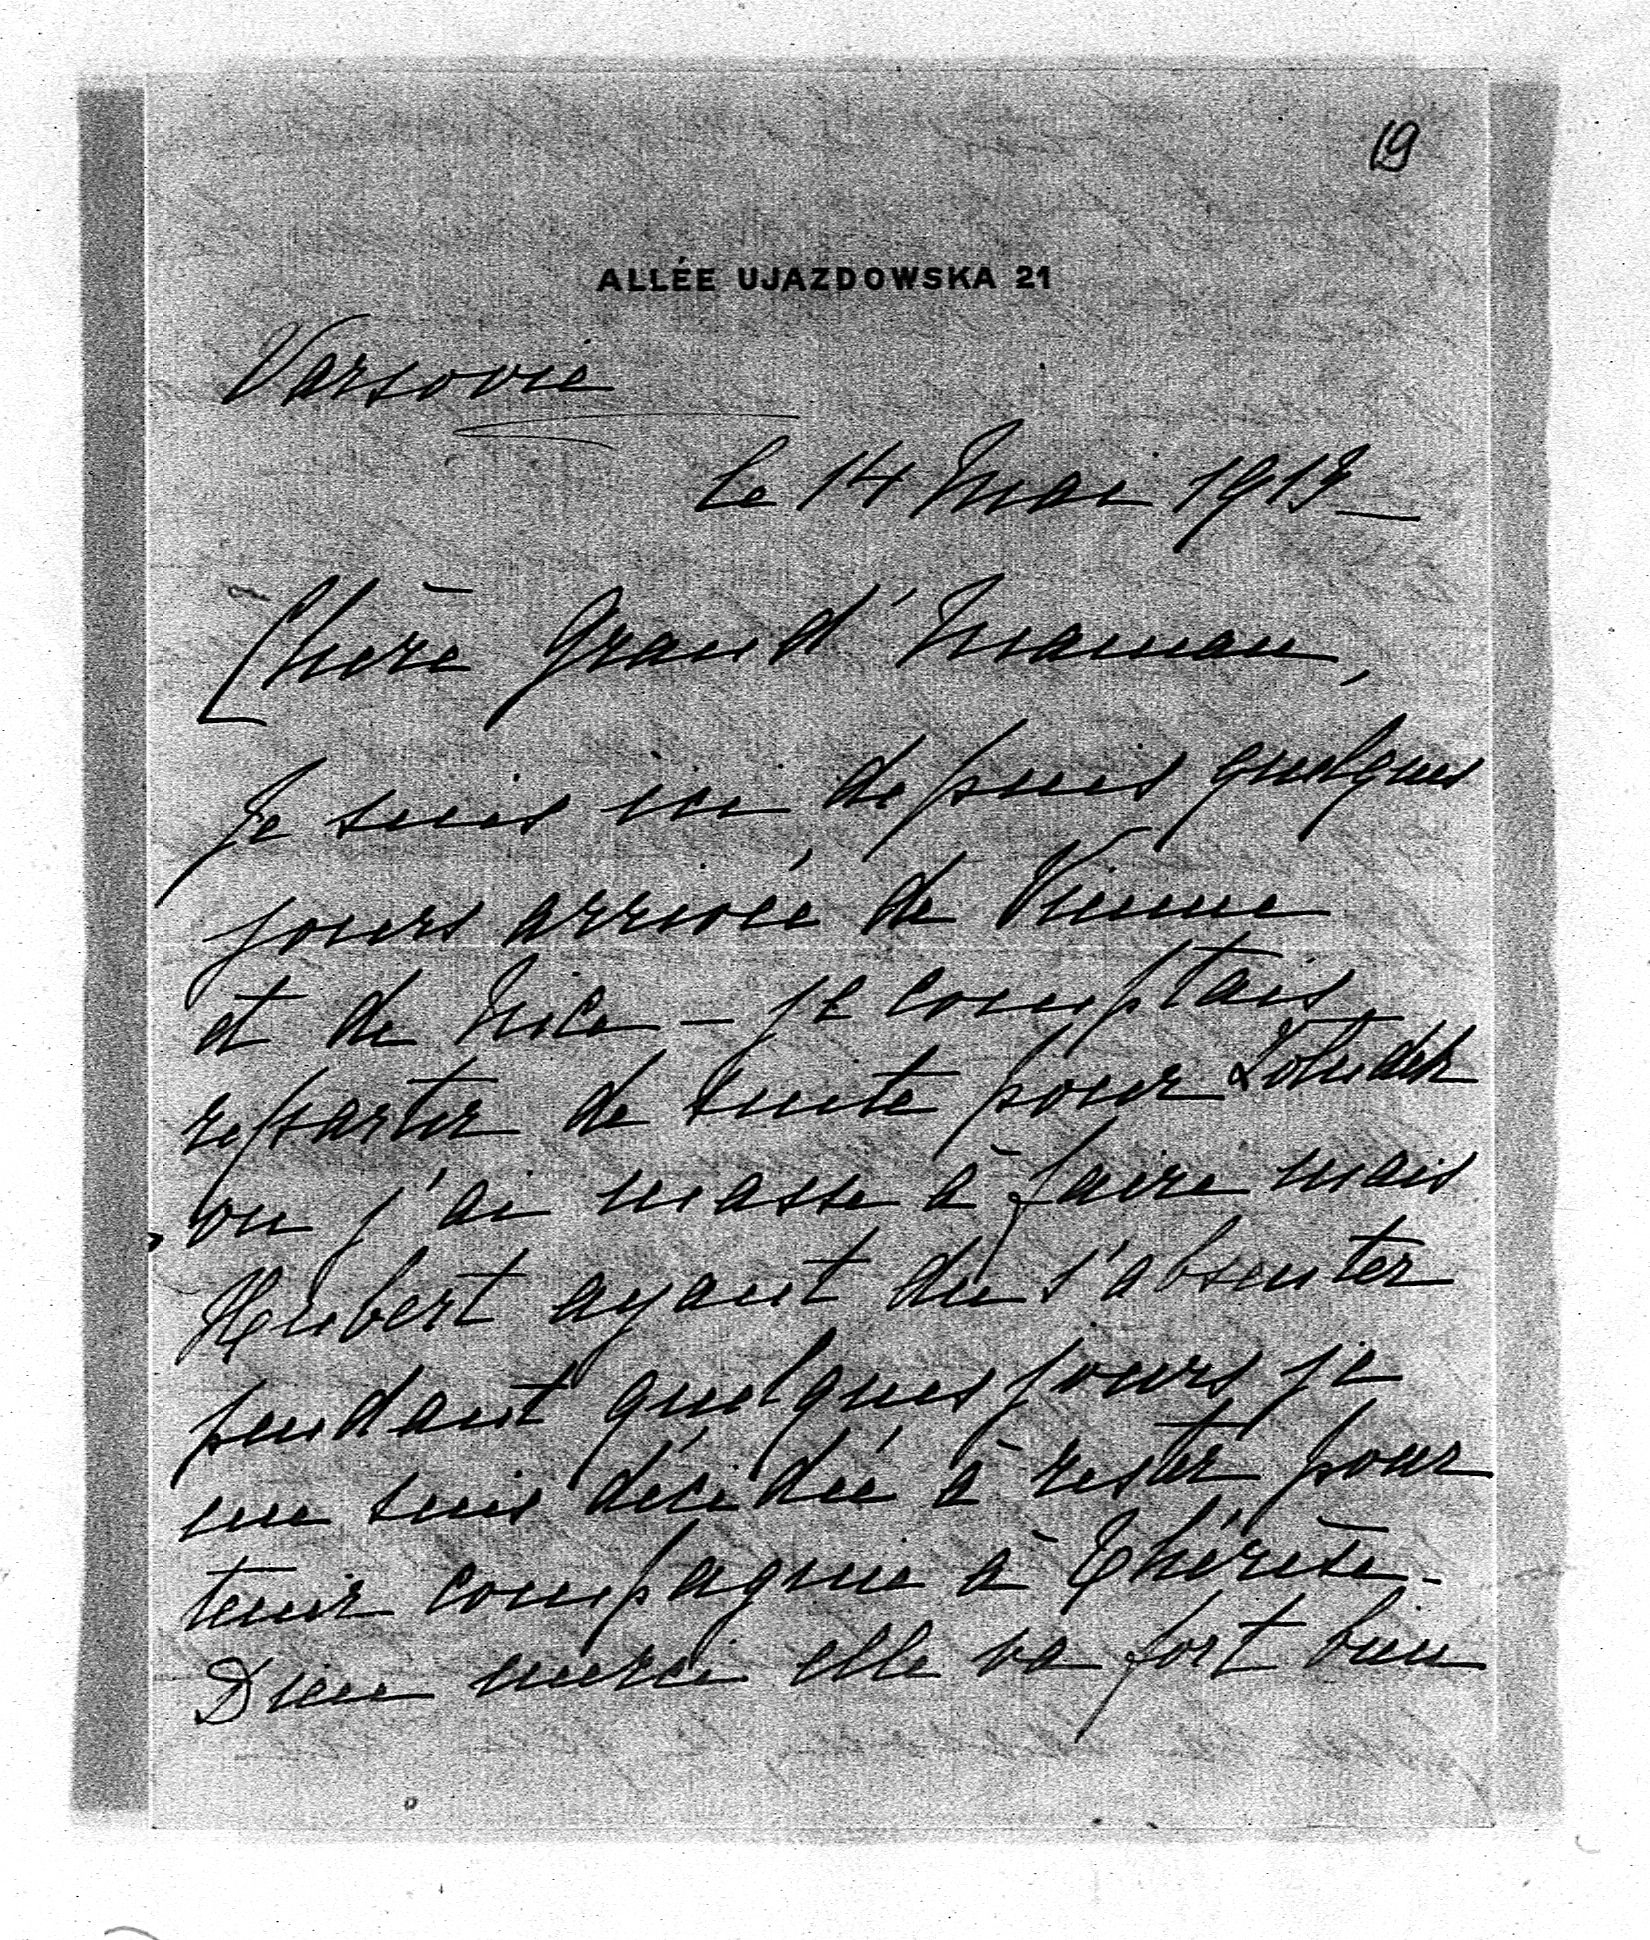 19
ALLÉE UJAZDOWSKA 21
Varsovie
le 14 Mai 1913
Chère Grand'Maman,
Je suis ici depuis quelques
jours arrivée de Vienne
et de Nice – je comptais
repartir de suite pour
ou j'ai masse à faire mais
Hubert ayant du s'absenter
pendant quelques jours je
me suis décidée à rester pour
tenir compagnie à Thérèse –
Dieu merci elle va fort bien